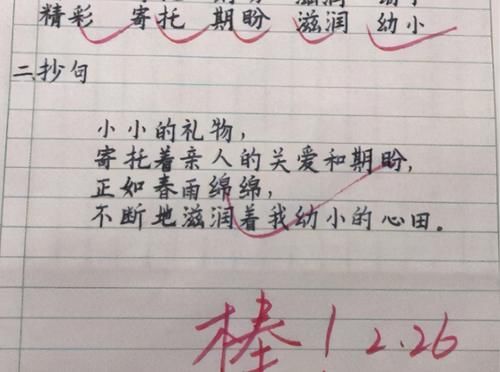 精彩 寄托 期盼 滋润 幼小
二抄句
小小的礼物，
寄托着亲人的关爱和期盼，
正如春雨绵绵，
不断地滋润着我幼小的心田。
棒！2.26